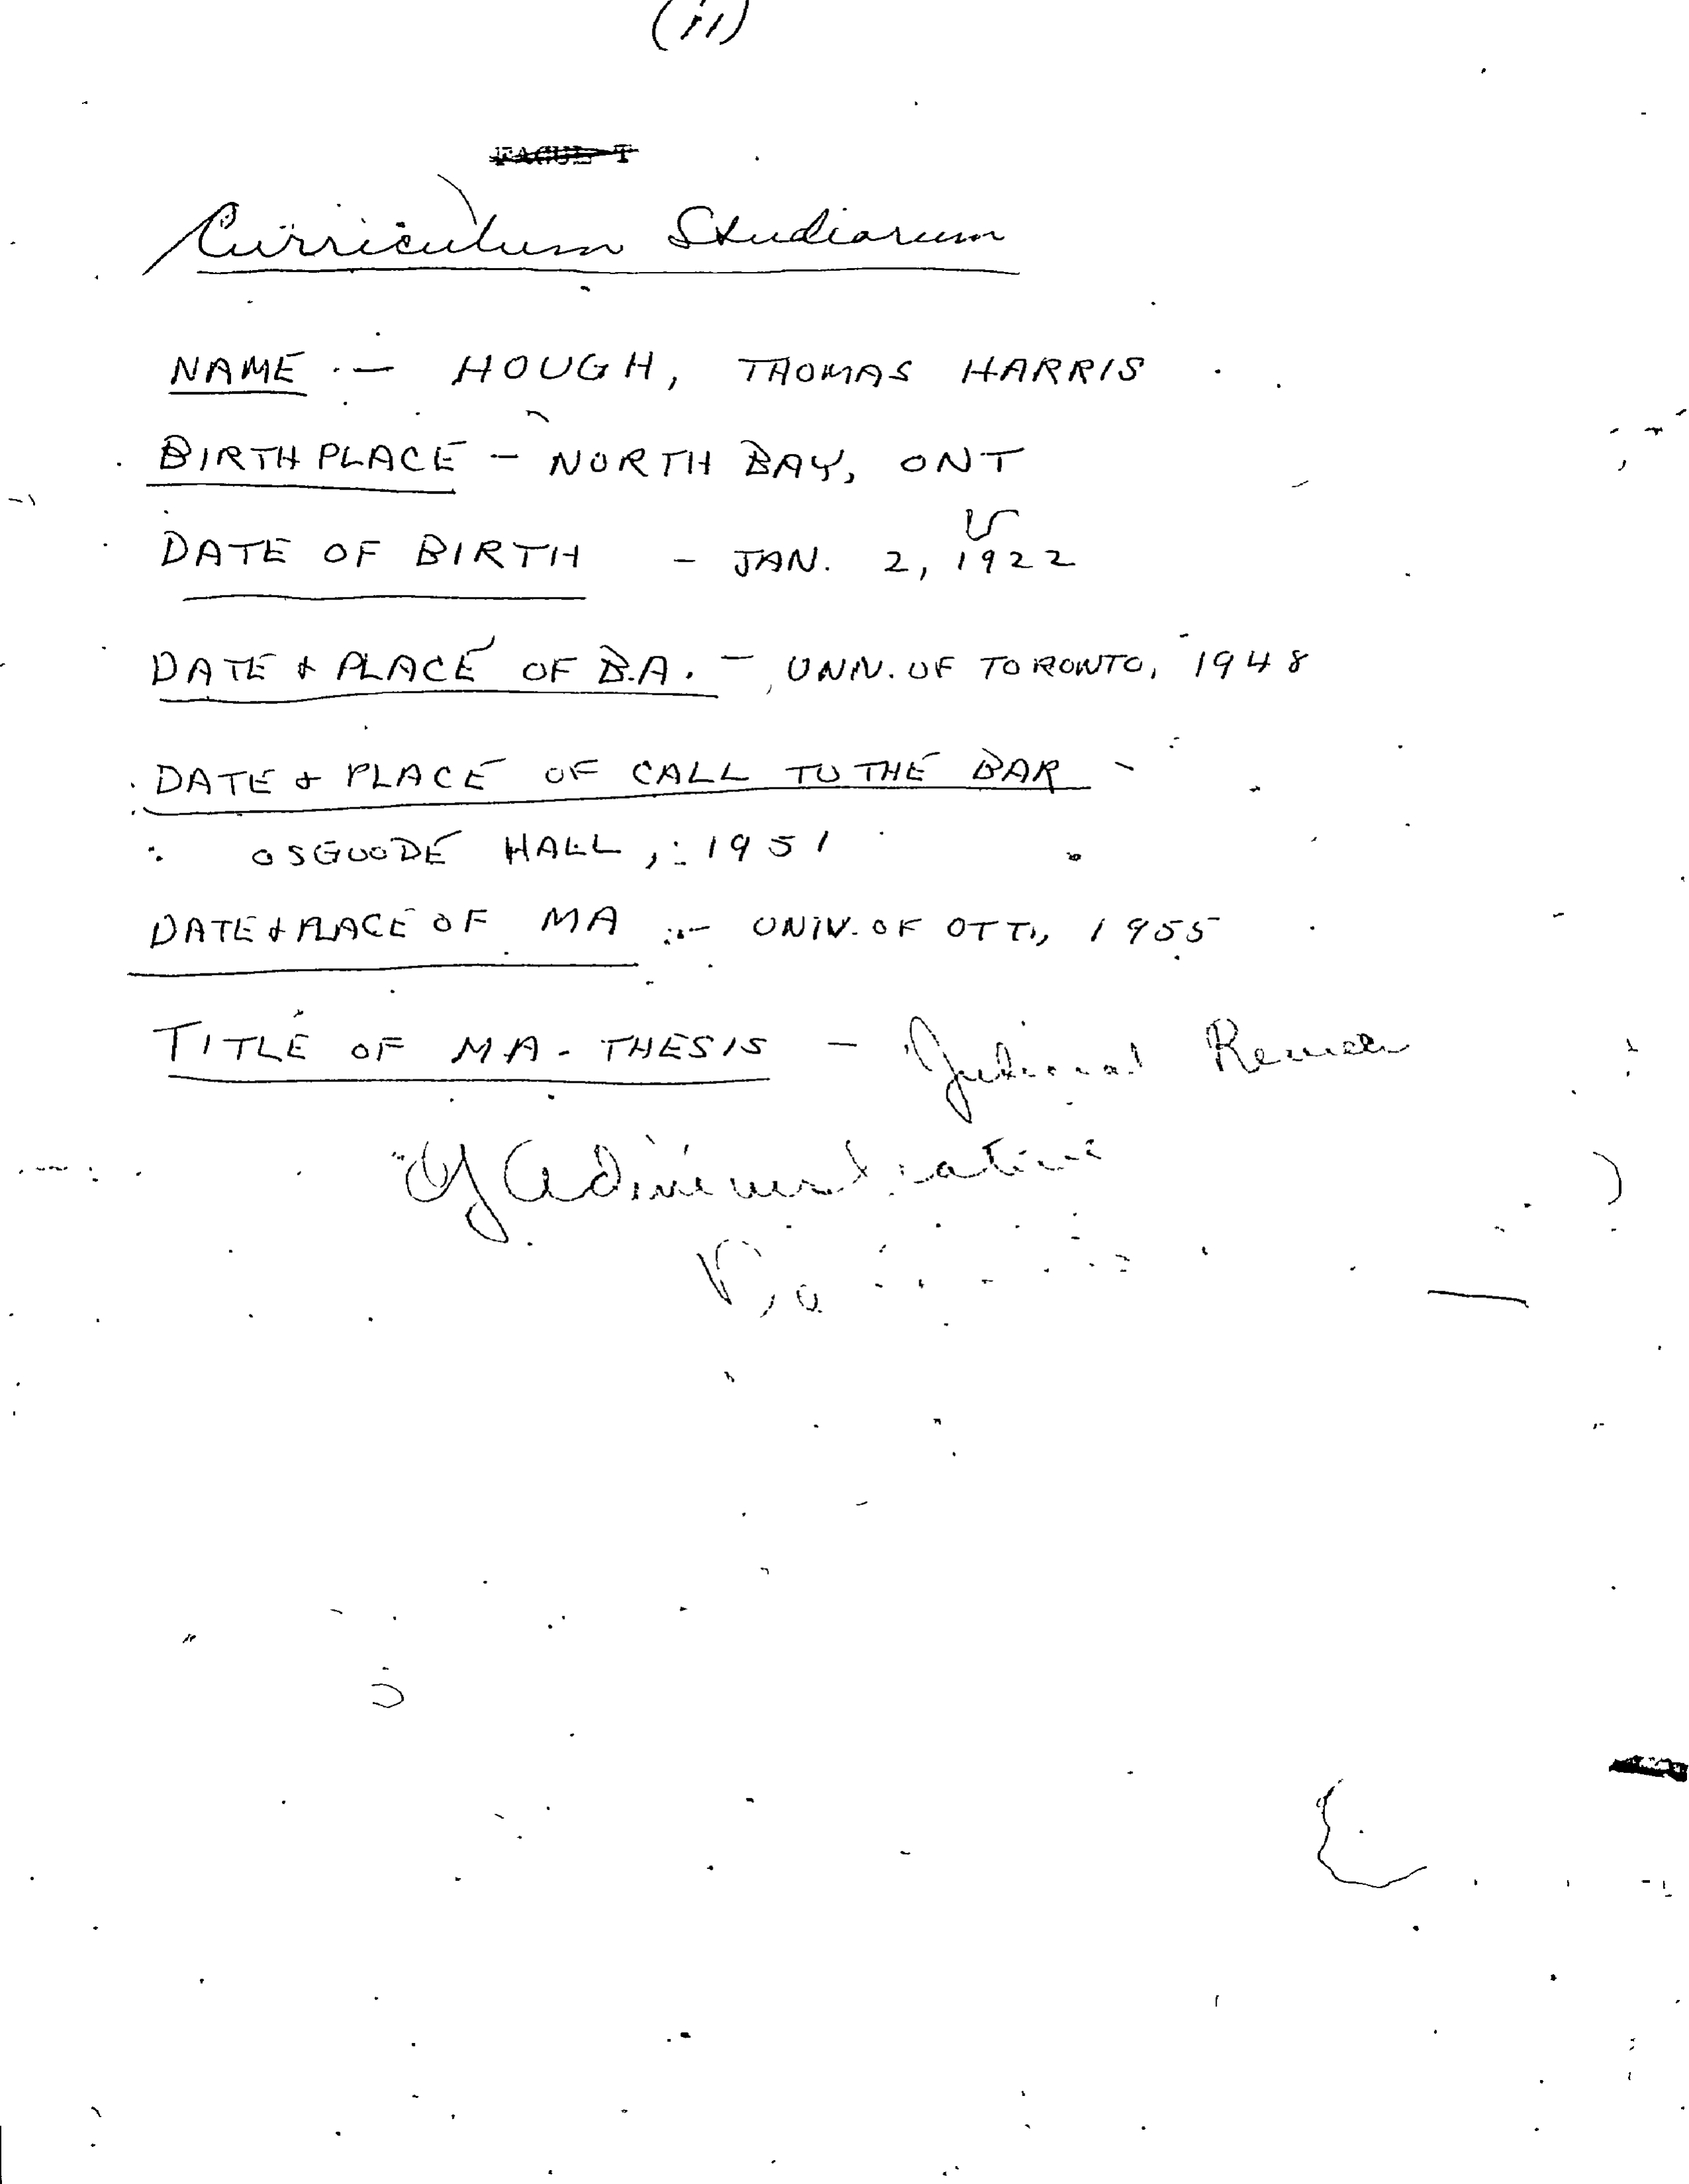 (ii)
Curriculum Studiorum
NAME :- HOUGH, THOMAS HARRIS
BIRTHPLACE - NORTH BAY, ONT
DATE OF BIRTH - JAN. 2, 1922
DATE & PLACE OF B.A. - UNIV. OF TORONTO, 1948
DATE & PLACE OF CALL TO THE BAR -
OSGOODE HALL, 1951
DATE & PLACE OF MA :- UNIV. OF OTT., 1955
TITLE OF MA. THESIS - Judicial Review
Of Administrative